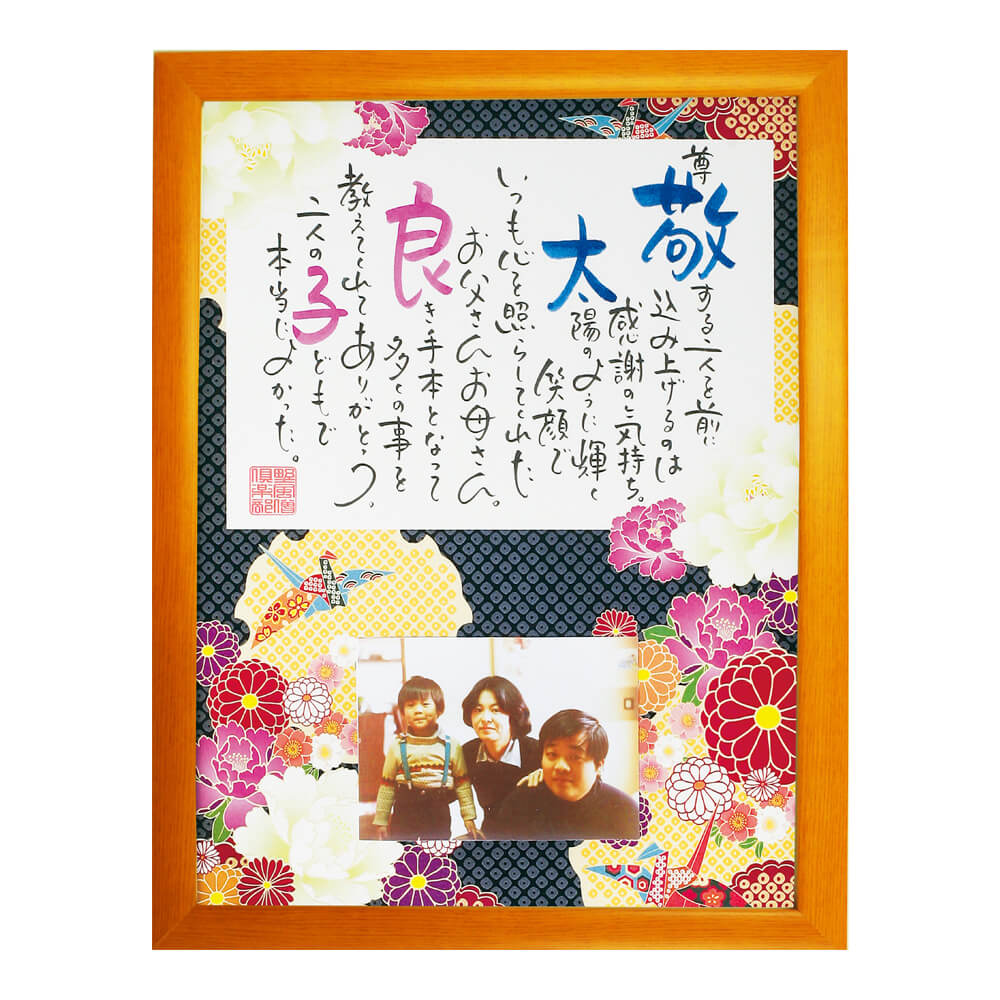 尊敬する二人を前に
込み上げるのは
感謝の気持ち。
太陽のように輝く
笑顔で
いつも心を照らしてくれた
お父さんお母さん。
良き手本となって
多くの事を
教えてくれてありがとう。
二人の子どもで
本当によかった。